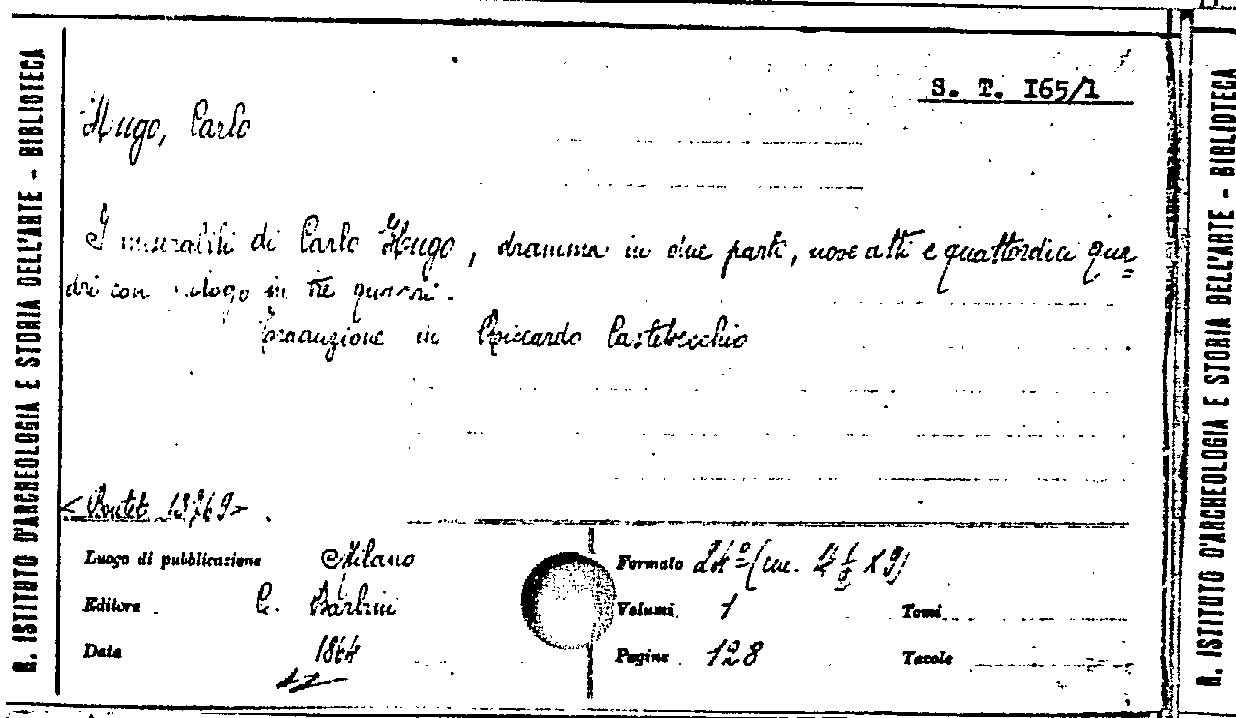 R. ISTITUTO D'ARCHEOLOGIA E STORIA DELL'ARTE - BIBLIOTECA
S. T. I65/1
Hugo, Carlo
I miserabili di Carlo Hugo, dramma in due parti, nove atti e quattordici qua=
dri con in tre quadri.
Traduzione di Riccardo Castelvecchio
13769
Luogo di pubblicazione Milano
Editore C. Barbini
Data 1864
Formato 24°
Volumi 1 Tomi
Pagine 128 Tavole
R. ISTITUTO D'ARCHEOLOGIA E STORIA DELL'ARTE - BIBLIOTECA